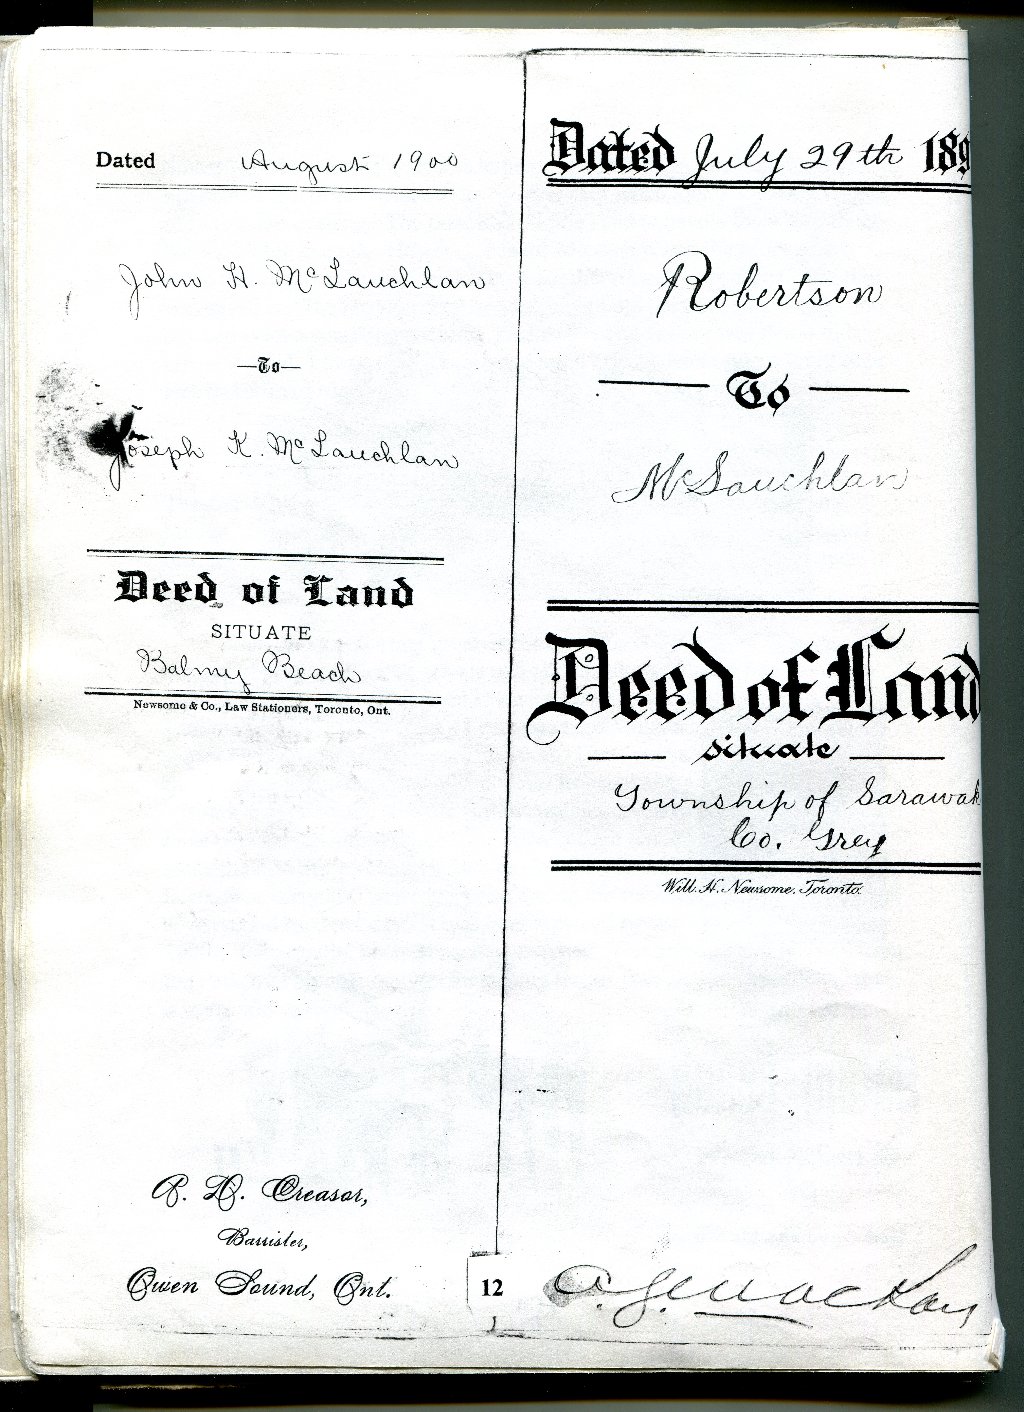 Dated August 1900
John H. McLauchlan
—To—
Joseph K. McLauchlan
Deed of Land
SITUATE
Balmy Beach
Newsome & Co., Law Stationers, Toronto, Ont.
A. D. Creasor,
Barrister,
Owen Sound, Ont.
12
Dated July 29th 189
Robertson
To
McLauchlan
Deed of Land
situate
Township of Sarawak
Co. Grey
Will. H. Newsome. Toronto.
A. G. MacKay